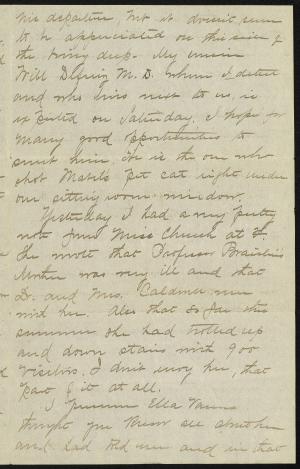 his departure, but it doesn't seem
to be appreciated on this side of
the briny deep. My cousin
Will D M. D. whom I detest
and who lives next to us, is
expected on Saturday. I hope for
many good opportunities to
snub him. He is the one who
shot Mabel's pet cat right under
our sitting room window.
Yesterday I had a very pretty
note from Miss Church at
She wrote that Professor
Mother was very ill and that
Dr. and Mrs. Caldwell were
with her. Also that so far this
summer she had trotted up
and down stairs with 900
visitors. I don't envy her, that
part of it at all.
I presume Ella
thought you knew all about her
and had told me and in that